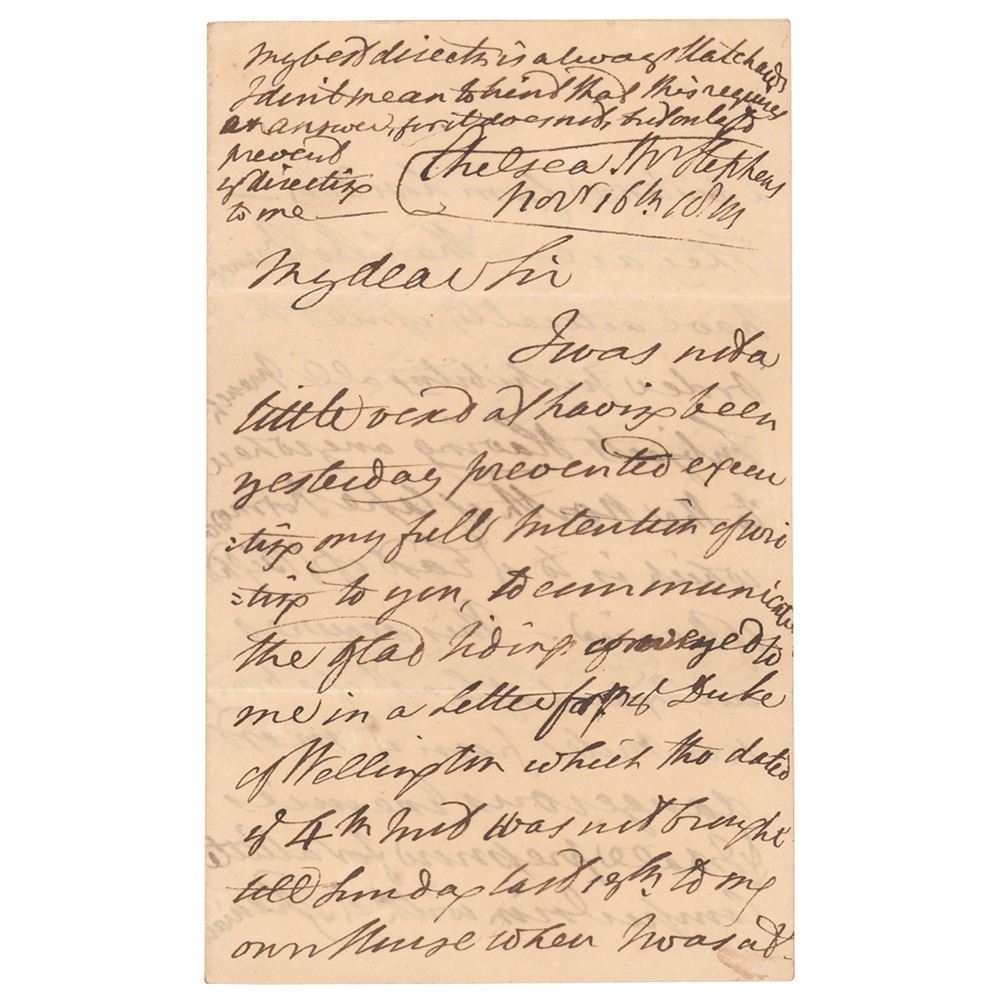 My best direction is always Hatchards
I don't mean to hind that this requires
an answer, for it does not, but only to
prevent
yr directing
to me —
Chelsea. Mr Stephens
Novr 16th 18
My dear Sir
I was not a
little vexd at having been
yesterday prevented execu
=ting my full Intention of wri
=ting to you, to communicate
the glad tidings conveyed to
me in a Letter from ye Duke
of Wellington which tho dated
ye 4th Inst was not brought
till Sunday last 13th to my
own House when I was at